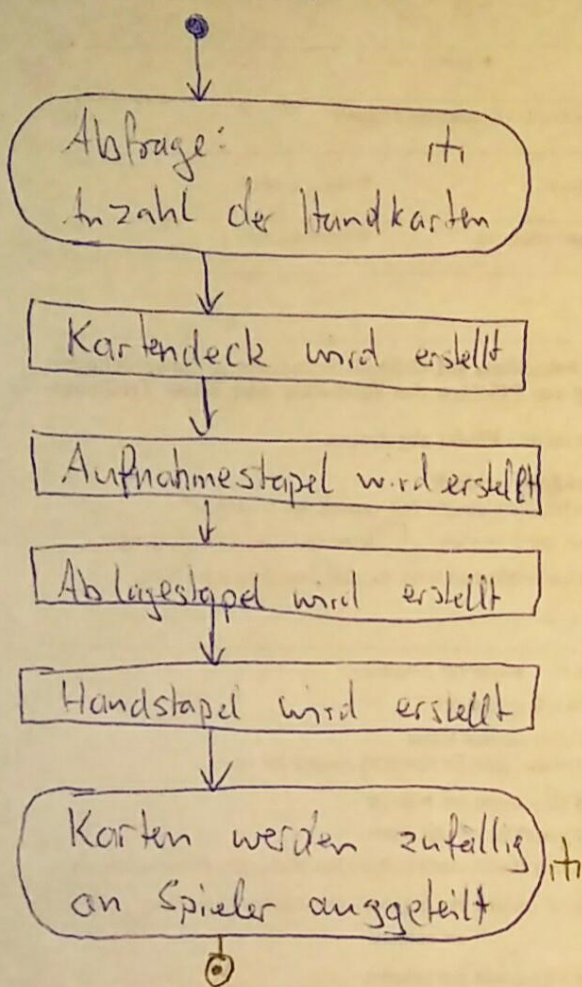 Abfrage:
Anzahl der Handkarten
Kartendeck wird erstellt
Aufnahmestapel wird erstellt
Ablagestapel wird erstellt
Handstapel wird erstellt
Karten werden zufällig
an Spieler ausgeteilt